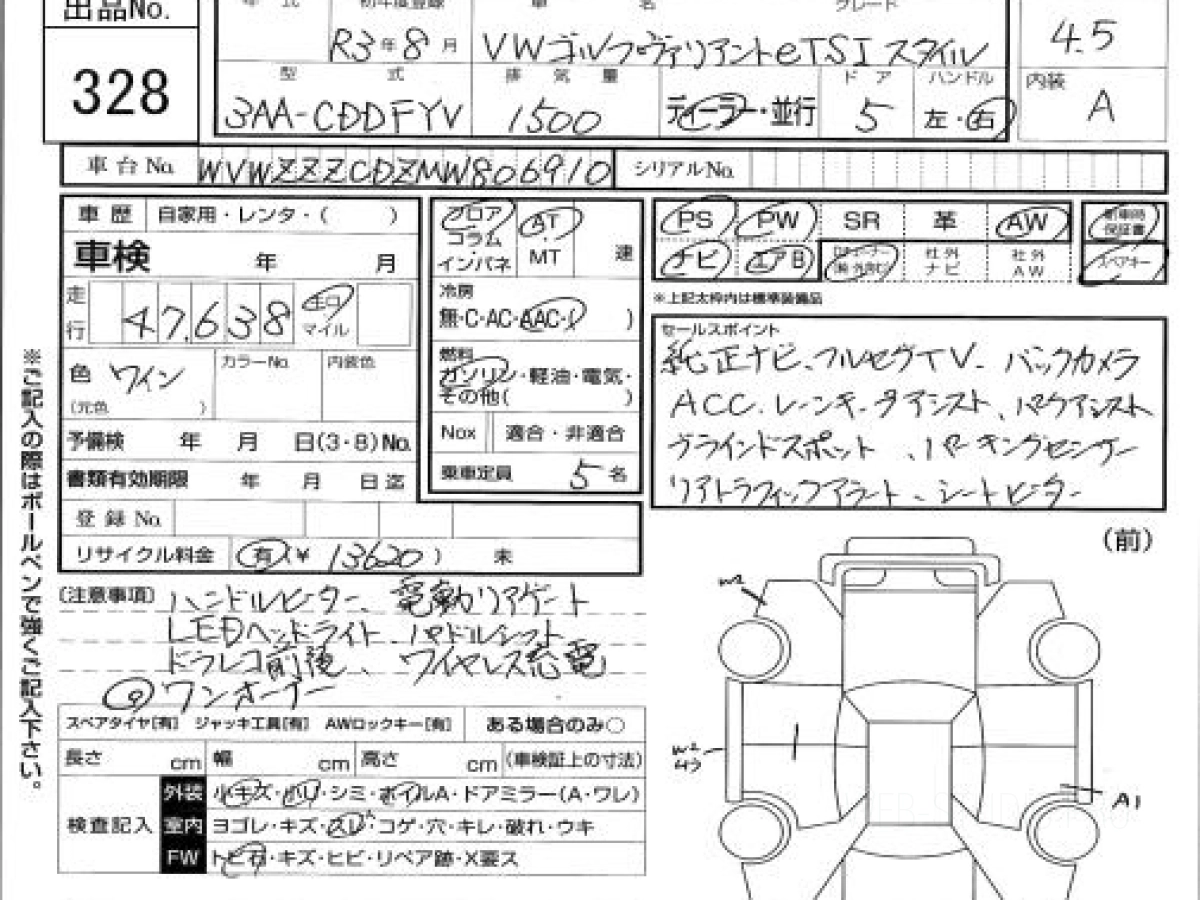 出品No.
328
年式 初年度登録 車名 グレード
R3年8月 VWゴルフヴァリアントeTSIスタイル
4.5
型式 排気量 ドア ハンドル 内装
3AA-CDDFYV 1500 ディーラー・並行 5 左・右 A
車台No. WVWZZZCDZMW806910 シリアルNo.
車歴 自家用・レンタ・( )
車検 年 月
走行 47,638 キロ マイル
色 ワイン カラーNo. 内装色
(元色 )
予備検 年 月 日(3・8)No.
書類有効期限 年 月 日迄
登録No.
リサイクル料金 有(¥ 13620 ) 未
フロア AT
コラム
インパネ MT 速
冷房
無・C・AC・AAC・( )
燃料
ガソリン・軽油・電気・
その他( )
Nox 適合・非適合
乗車定員 5名
PS PW SR 革 AW 新車時保証書
ナビ エアB 社外ナビ 社外AW スペアキー
※上記太枠内は標準装備品
セールスポイント
純正ナビ、フルセグTV、バックカメラ
ACC、レーンキープアシスト、パークアシスト
ブラインドスポット、パーキングセンサー
リアトラフィックアラート、シートヒーター
(前)
〔注意事項〕ハンドルヒーター、電動リアゲート
LEDヘッドライト、パドルシフト
ドラレコ前後、ワイヤレス充電
ワンオーナー
スペアタイヤ[有] ジャッキ工具[有] AWロックキー[有] ある場合のみ○
長さ cm 幅 cm 高さ cm (車検証上の寸法)
検査記入
外装 小キズ・ハリ・シミ・ホイルA・ドアミラー(A・ワレ)
室内 ヨゴレ・キズ・スレ・コゲ・穴・キレ・破れ・ウキ
FW トビ石・キズ・ヒビ・リペア跡・X要ス
W2
A1
※ご記入の際はボールペンで強くご記入下さい。